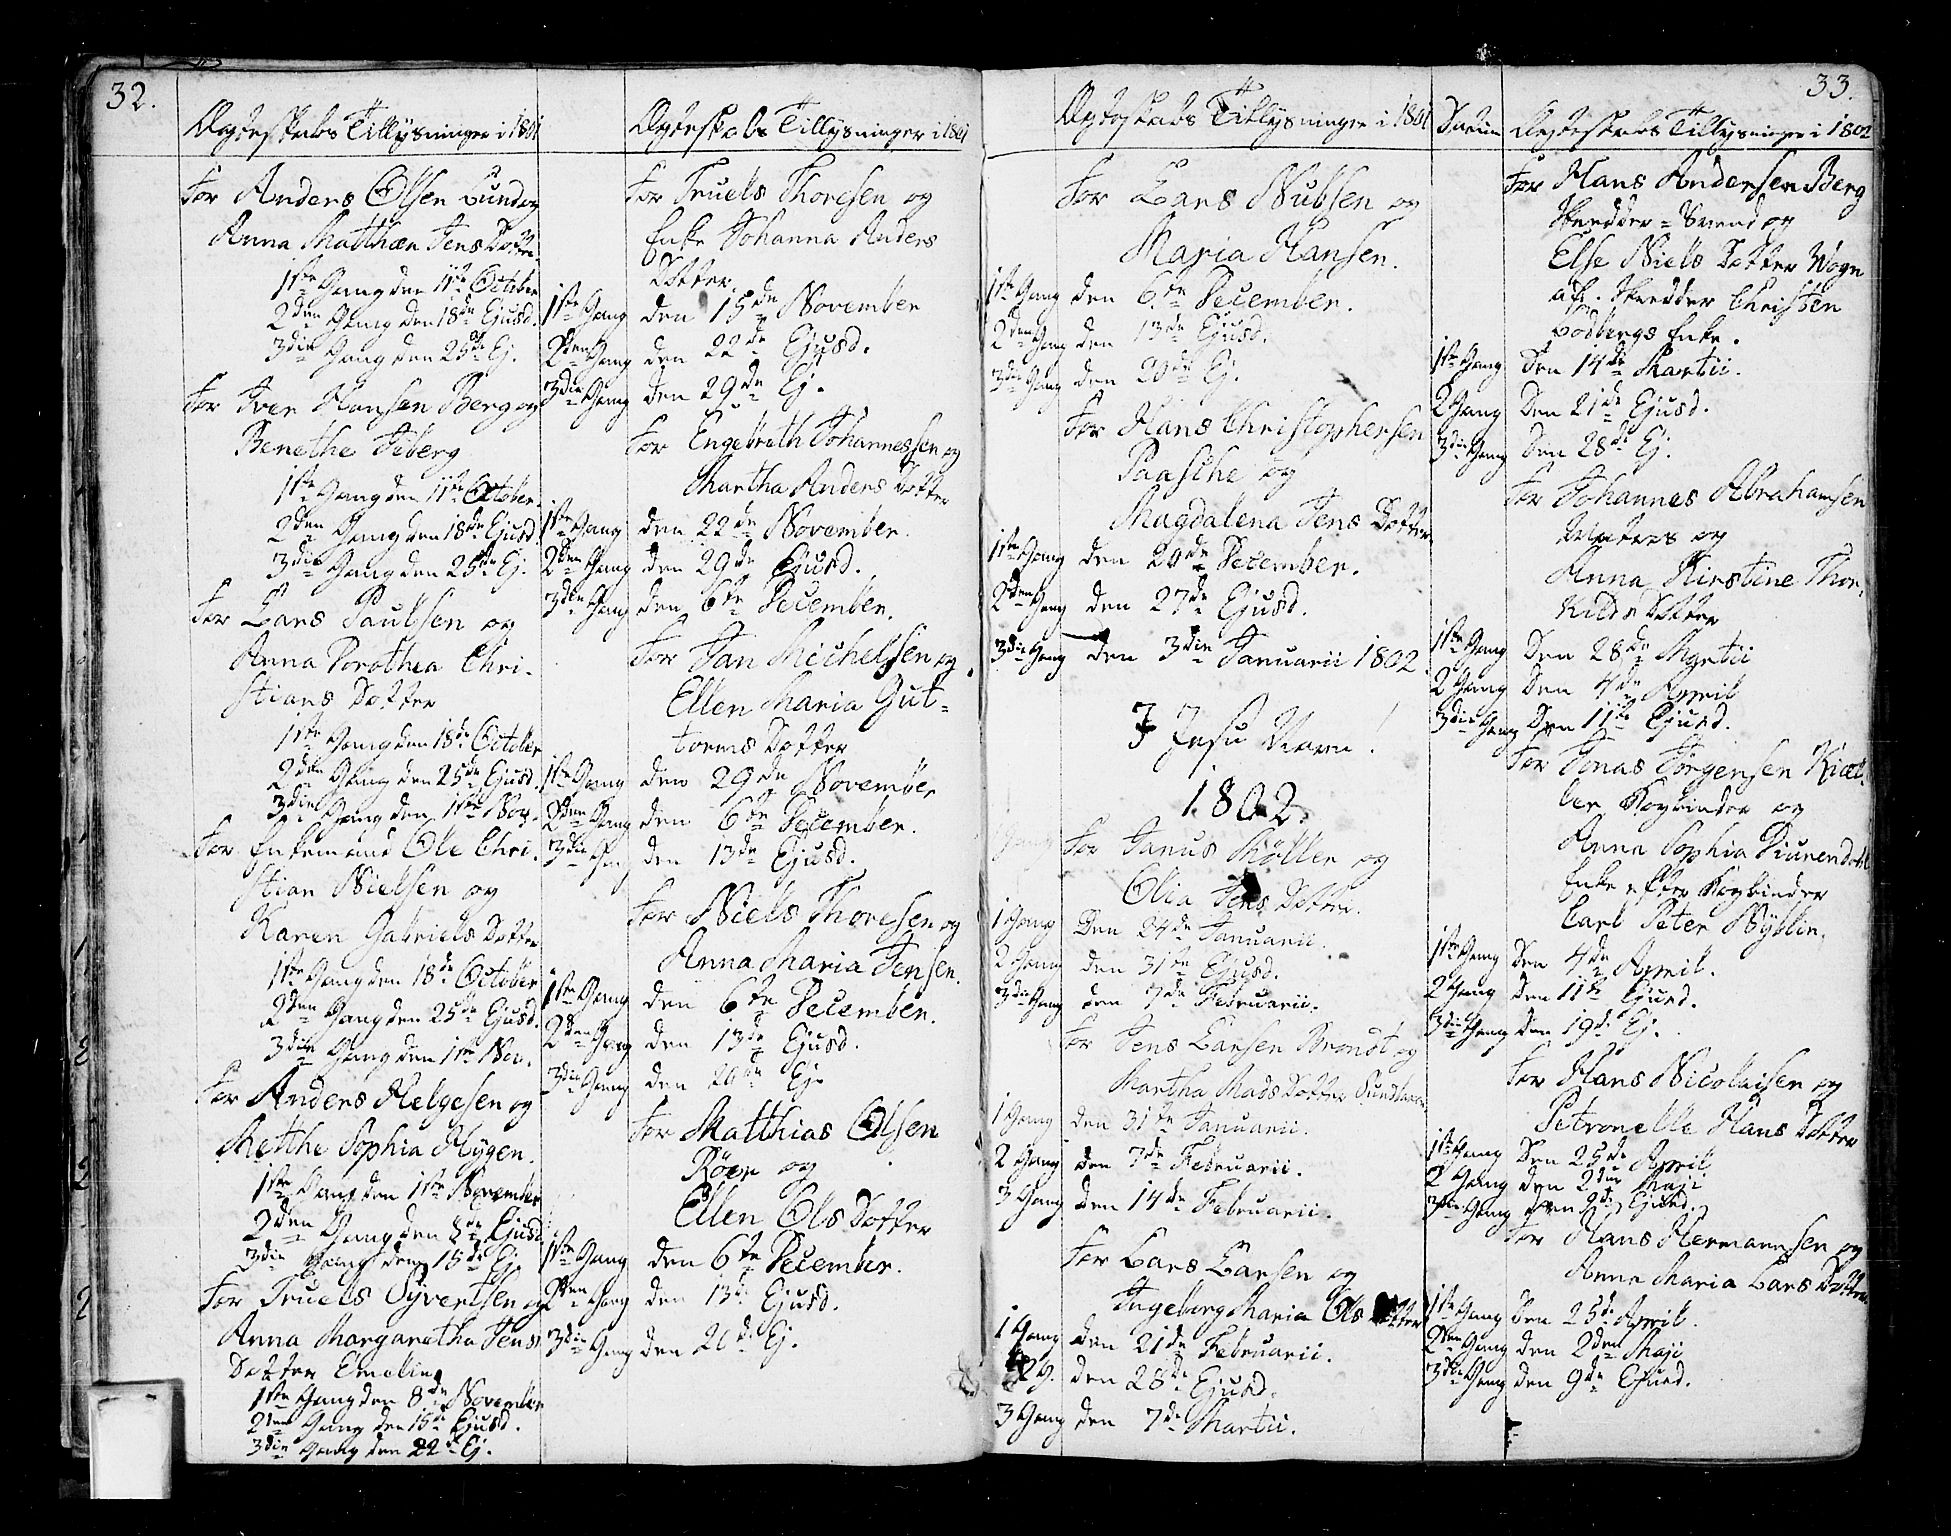 32.
Ægteskabs Tillysninger i 1801
For Anders Olsen Lund og
Anna Matthea Jens Dotter
1ste Gang den 11te October
2den Gang den 18de Ejusd.
3die Gang den 25de Ej.
For Iver Hansen Berg og
Benethe Feberg
1ste Gang den 11te October.
2den Gang den 18de Ejusd
3die Gang den 25de Ej.
For Lars Paulsen og
Anna Dorothea Chri-
stians Dotter
1ste Gang den 18de October
2den Gang den 25de Ejusd.
3die Gang den 1ste Nov.
For Enkemand Ole Chri-
stian Nielsen og
Karen Gabriels Dotter
1ste Gang den 18de October
2den Gang den 25de Ejusd.
3die Gang den 1ste Nov.
For Anders Helgesen og
Methe Sophia Hygen.
1ste Gang den 1ste November
2den Gang den 8de Ejusd.
3die Gang den 15de Ej.
For Truels Syvertsen og
Anna Margaretha Jens
Dotter Emelin
1ste Gang den 8de November
2den Gang den 15de Ejusd.
3die Gang den 22de Ej.
Ægteskabs Tillysninger i 1801
For Truels Thoresen og
Enke Johanna Anders
Dotter.
1ste Gang den 15de November
2den Gang den 22de Ejusd.
3die Gang den 29de Ej.
For Engebreth Johannessen og
Martha Anders Dotter
1ste Gang den 22de November.
2den Gang den 29de Ejusd.
3die Gang den 6te December.
For Jan Michelsen og
Ellen Maria Gut-
torms Dotter
1ste Gang den 29de November
2den Gang den 6te December.
3die Gang den 13de Ejusd.
For Niels Thoresen og
Anna Maria Jensen.
1ste Gang den 6te December.
2den Gang den 13de Ejusd.
3die Gang den 20de Ej.
For Matthias Olsen
Röer og
Ellen Ols Dotter
1ste Gang den 6te December.
2den Gang den 13de Ejusd.
3die Gang den 20de Ej.
Ægteskabs Tillysninger i 1801
For Lars Nubsen og
Maria Hansen.
1ste Gang den 6te December.
2den Gang den 13de Ejusd.
3die Gang den 20de Ej.
For Hans Christophersen
Paasche og
Magdalena Jens Dotter
1ste Gang den 20de December.
2den Gang den 27de Ejusd.
3die Gang den 3die Januarii 1802.
I Jesu Navn!
1802.
For Janus Møller og
Olia Jens Dotter.
1 Gang Den 24de Januarii.
2 Gang den 31te Ejusd.
3die Gang den 7de Februarii.
For Jens Larsen Brandt og
Martha Mads Dotter
1 Gang den 31te Januarii.
2 Gang den 7de Februarii.
3 Gang den 14de Februarii.
For Lars Larsen og
Ingeborg Maria Ols Dotter
1 Gang den 21de Februarii.
2 G. den 28de Ejusd.
3 Gang den 7de Martii.
33.
Datum Ægteskabs Tillysninger i 1802
For Hans Andersen Berg
Skredder-Svend og
Else Niels Dotter Wogn
afg. Skredder Christen
Bodbergs Enke.
1ste Gang Den 14de Martii.
2 Gang Den 21de Ejusd.
3die Gang Den 28de Ej.
For Johannes Abrahamsen
Matros og
Anna Kirstine Thor-
kilds Dotter
1ste Gang Den 28de Martii
2 Gang Den 4de April
3die Gang Den 11te Ejusd.
For Jonas Jørgensen Kiøl-
ber og
Anna Sophia
Enke efter
Carl Peter Nyblin.
1ste Gang Den 4de April.
2 Gang Den 11te Ejusd.
3die Gang Den 19de Ej.
For Hans Nicolaisen og
Petronelle Hans Dotter
1ste Gang Den 25de April
2 Gang den 2den Maji
3die Gang den 9de Ejusd.
For Hans Hermannsen og
Anna Maria Lars Dotter
1ste Gang Den 25de April.
2den Gang den 2den Maji
3die Gang den 9de Ejusd.